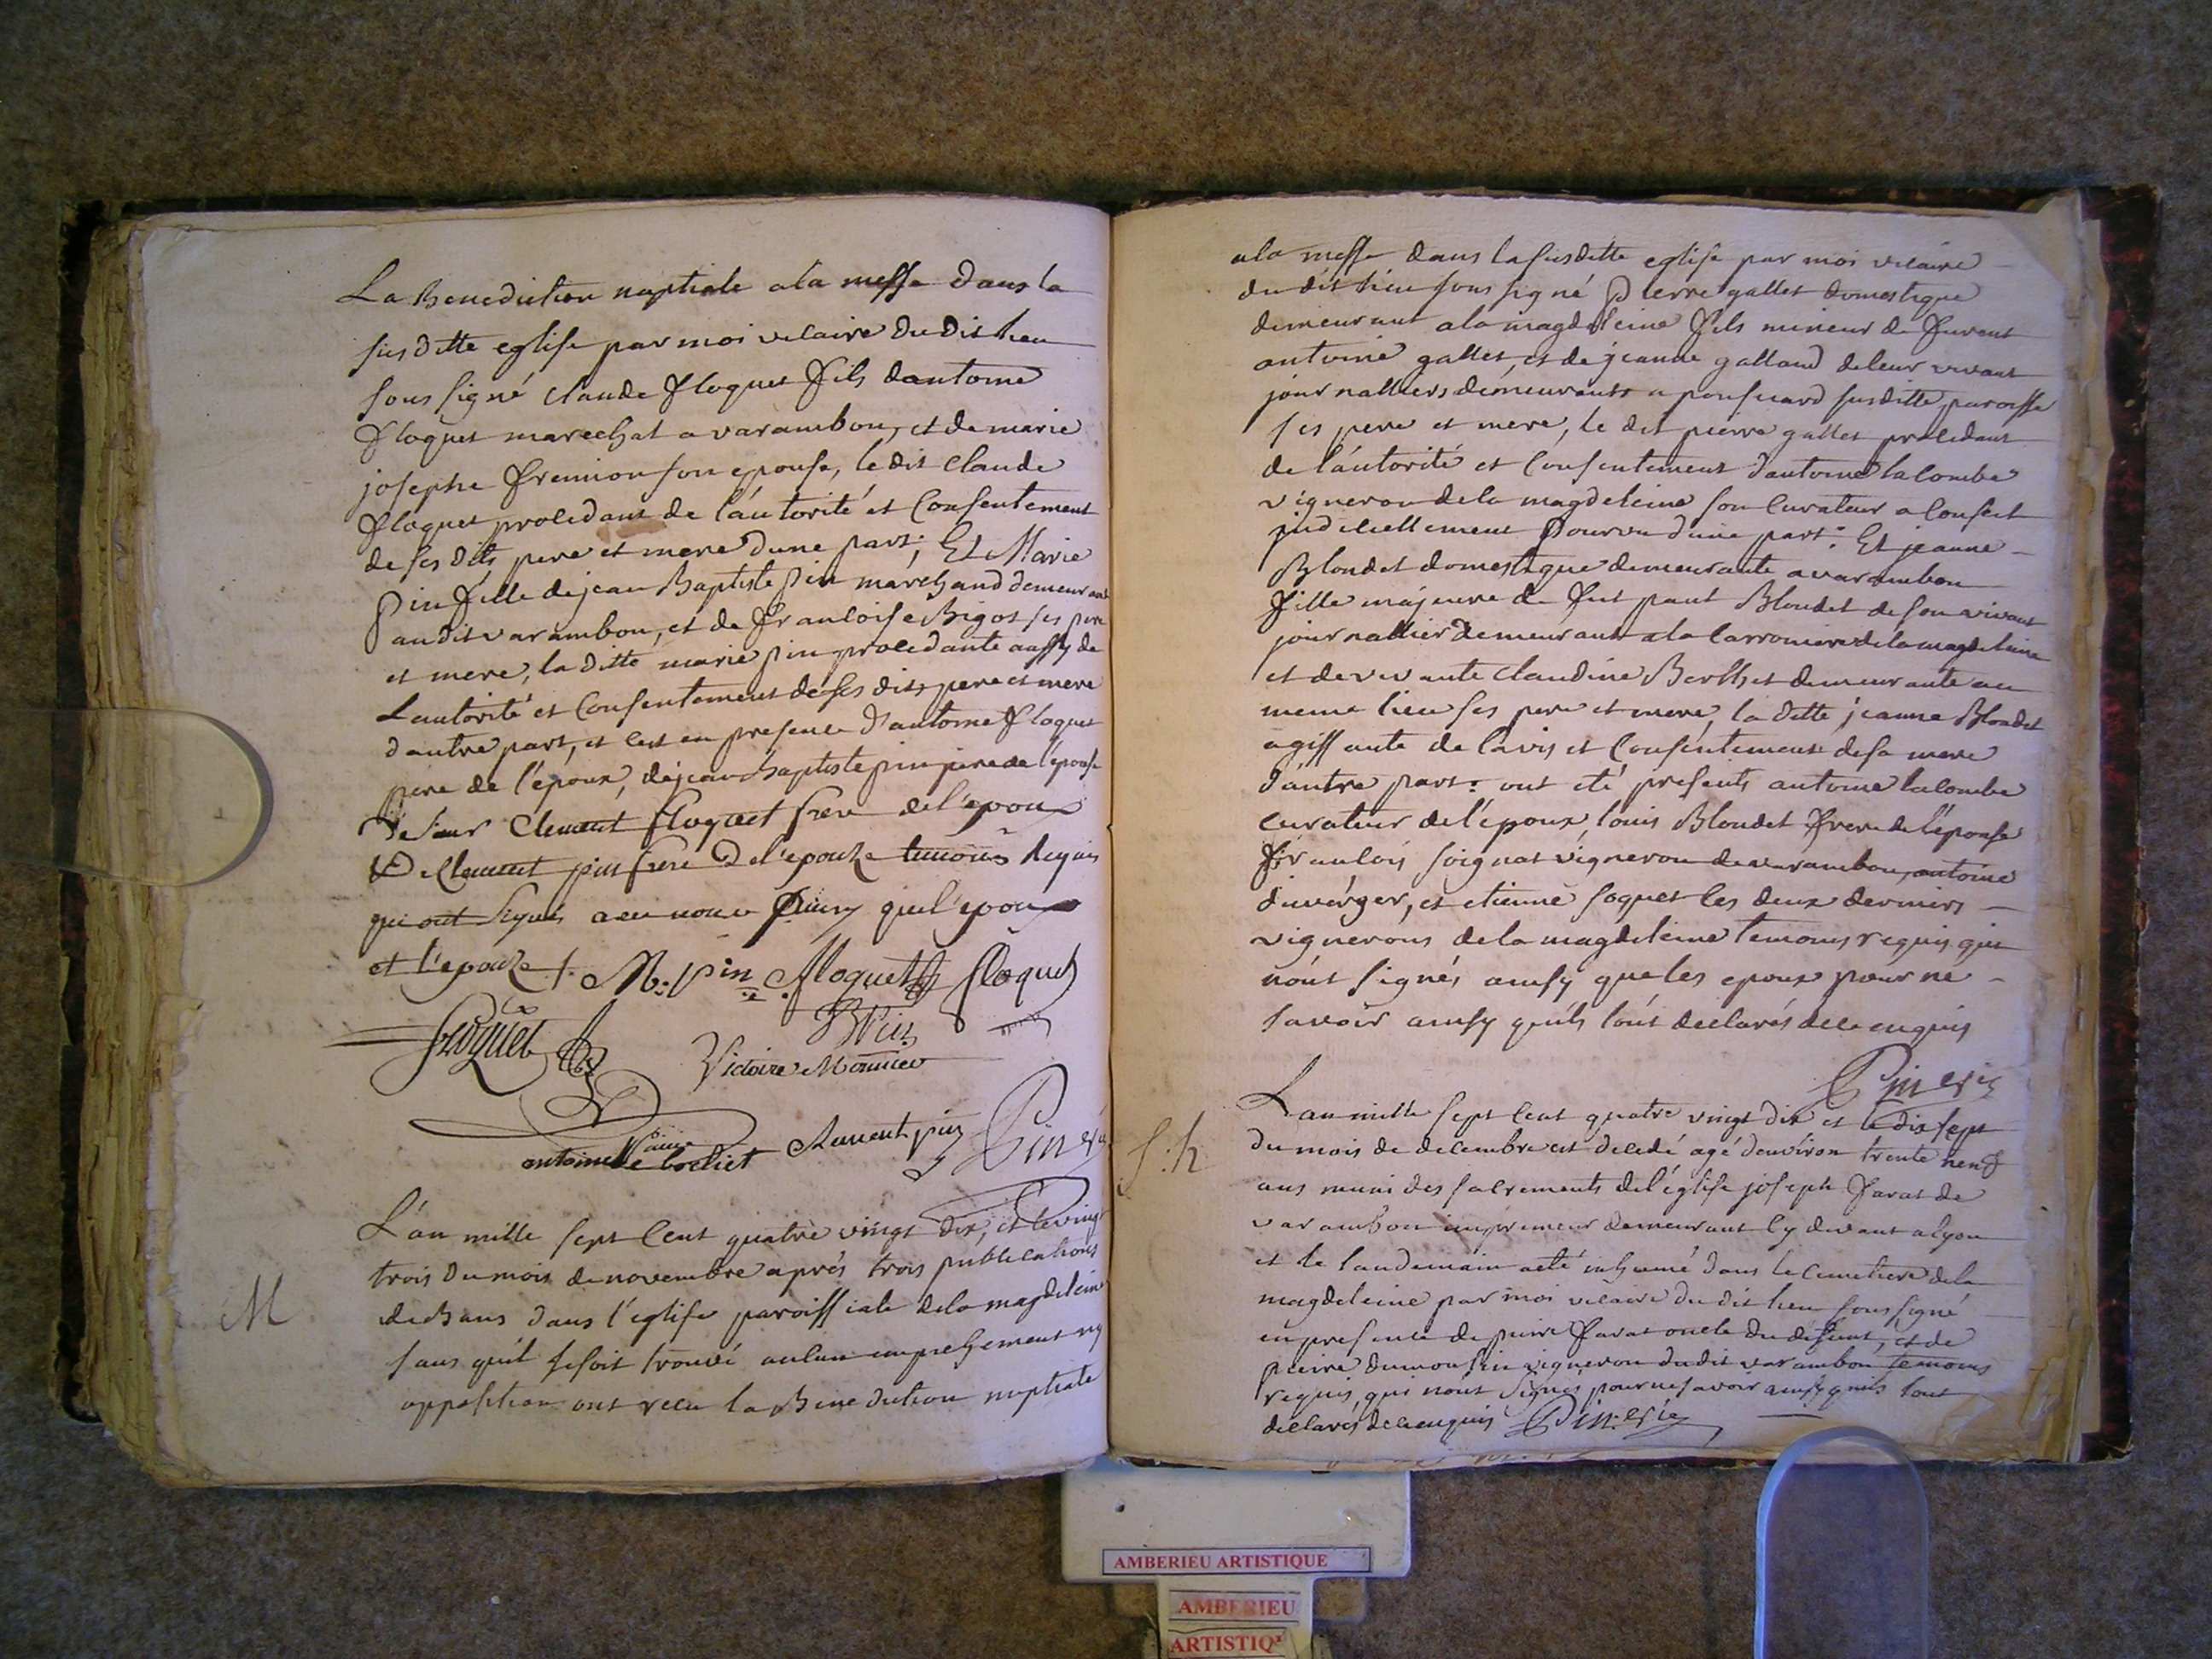 La Benediction nuptiale a la messe dans la
susditte eglise par moi vicaire du dit lieu
sous signé claude floquet fils dantoine
floquet marechal a varambon, et de marie
josephe fremion son epouse, le dit claude
floquet procedant de l'autorité et Consentement
de ses dits pere et mere d'une part; Et Marie
pin fille de jean Baptiste pin marchand demeurant
au dit varambon, et de francoise Bigot ses pere
et mere, la ditte marie pin procedante aussy de
L'autorité et Consentement de ses dits pere et mere
d'autre part, et c'est en presence d'antoine floquet
pere de l'epoux, de jean baptiste pin pere de l'epouse
de Sieur Clement floquet frere de l'epoux
& de Clement pin frere de l'epouze temoins requis
qui ont signés avec nous que l'epoux
et l'epouze /. M: pin floquet floquet
floquet BPin
Victoire Monnier
antoinette Clement pin Pinerie
L'an mille sept cent quatre vingt dix, et le vingt
trois du mois de novembre aprés trois publications
M
de Bans dans l'eglise paroissiale de la magdeleine
sans qu'il se soit trouvé aucun empechement ny
opposition ont recu la Benediction nuptiale
a la messe dans la susditte eglise par moi vicaire
du dit lieu sous signé pierre gallet domestique
demeurant a la magdeleine fils mineur de fuvent
antoine gallet, et de jeanne galland de leur vivant
journalliers demeurants a susditte paroisse
ses pere et mere, le dit pierre gallet procedant
de l'autorité et Consentement d'antoine lacombe
vigneron de la magdeleine son Curateur a Conseil
judiciellement pourvu d'une part: Et jeanne
Blondet domestique demeurante a varambon
fille majeure de fut paul Blondet de son vivant
journallier demeurant a la de la magdeleine
et de vivante claudine Berthet demeurante au
meme lieu ses pere et mere, la ditte jeanne Blondet
agissante de l'avis et Consentement de sa mere
d'autre part: ont eté presents antoine lacombe
curateur de l'epoux, louis Blondet frere de l'epouse
francois soignat vigneron de varambon, antoine
duverger, et etienne soquet les deux derniers
vignerons de la magdeleine temoins requis qui
n'ont signés ainsy que les epoux pour ne
savoir ainsy qu'ils l'ont declarés de ce enquis
Pinerie
L'an mille sept cent quatre vingt dix et le dix sept
S:h
du mois de decembre est decedé agé d'environ trente neuf
ans muni des sacrements de l'église joseph favat de
varambon imprimeur demeurant cy devant a lyon
et le landemain a eté inhumé dans le cimetiere de la
magdeleine par moi vicaire du dit lieu sous signé
en presence de pierre favat oncle du defunt, et de
pierre dumoulin vigneron du dit varambon temoins
requis qui n'ont signés pour ne savoir ainsy qu'ils l'ont
declarés de ce enquis Pinerie
AMBERIEU ARTISTIQUE
AMBERIEU
ARTISTIQ